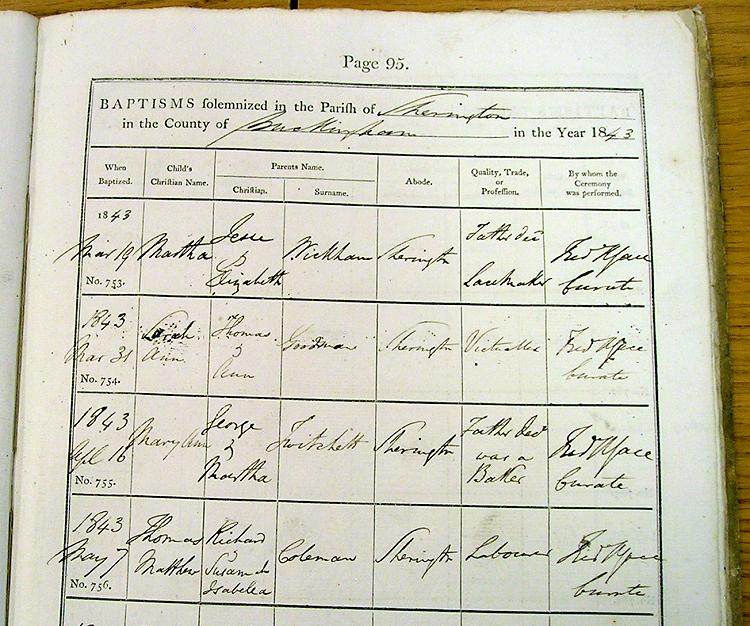 Page 95.
BAPTISMS solemnized in the Parish of Sherington
in the County of Buckingham in the Year 1843
When Baptized. Child's Christian Name. Parents Name. Abode. Quality, Trade, or Profession. By whom the Ceremony was performed.
Christian. Surname.
1843 Jesse Father decd
Mar 19 Martha & Wickham Sherington Fredk
No. 753. Elizabeth LaceMaker Curate
1843 Sarah Thomas
Mar 31 Ann & Goodman Sherington Victualler Fredk
No. 754. Ann Curate
1843 George Father decd
Apl 16 Mary Ann & Twitchett Sherington was a Fredk
No. 755. Martha Baker Curate
1843 Thomas Richard
May 7 Matthew Susannah Coleman Sherington Labourer Fredk
No. 756. Isabella Curate